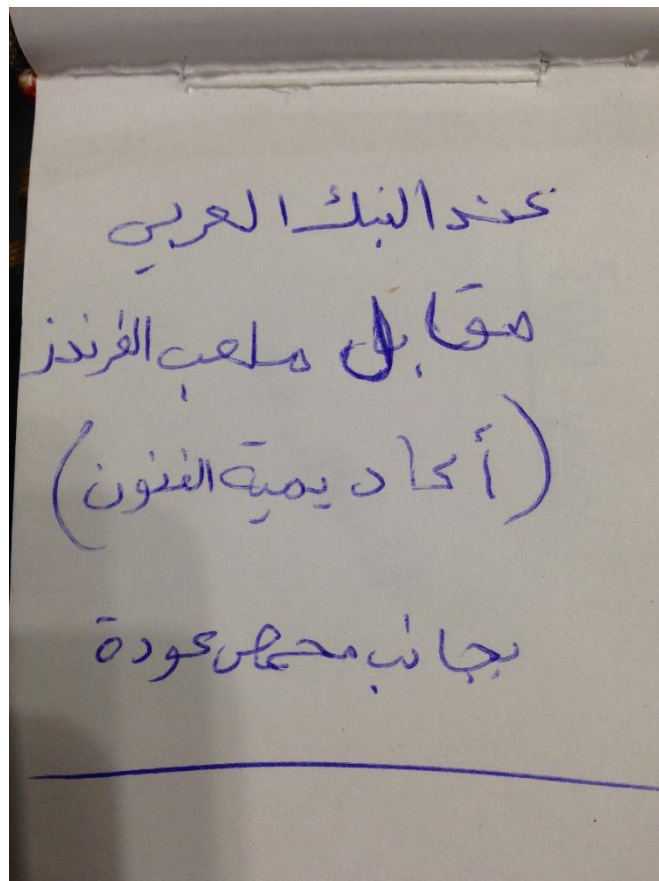 عند البنك العربي
مقابل ملعب الفرندز
(أكاديمية الفنون)
بجانب محمص عودة